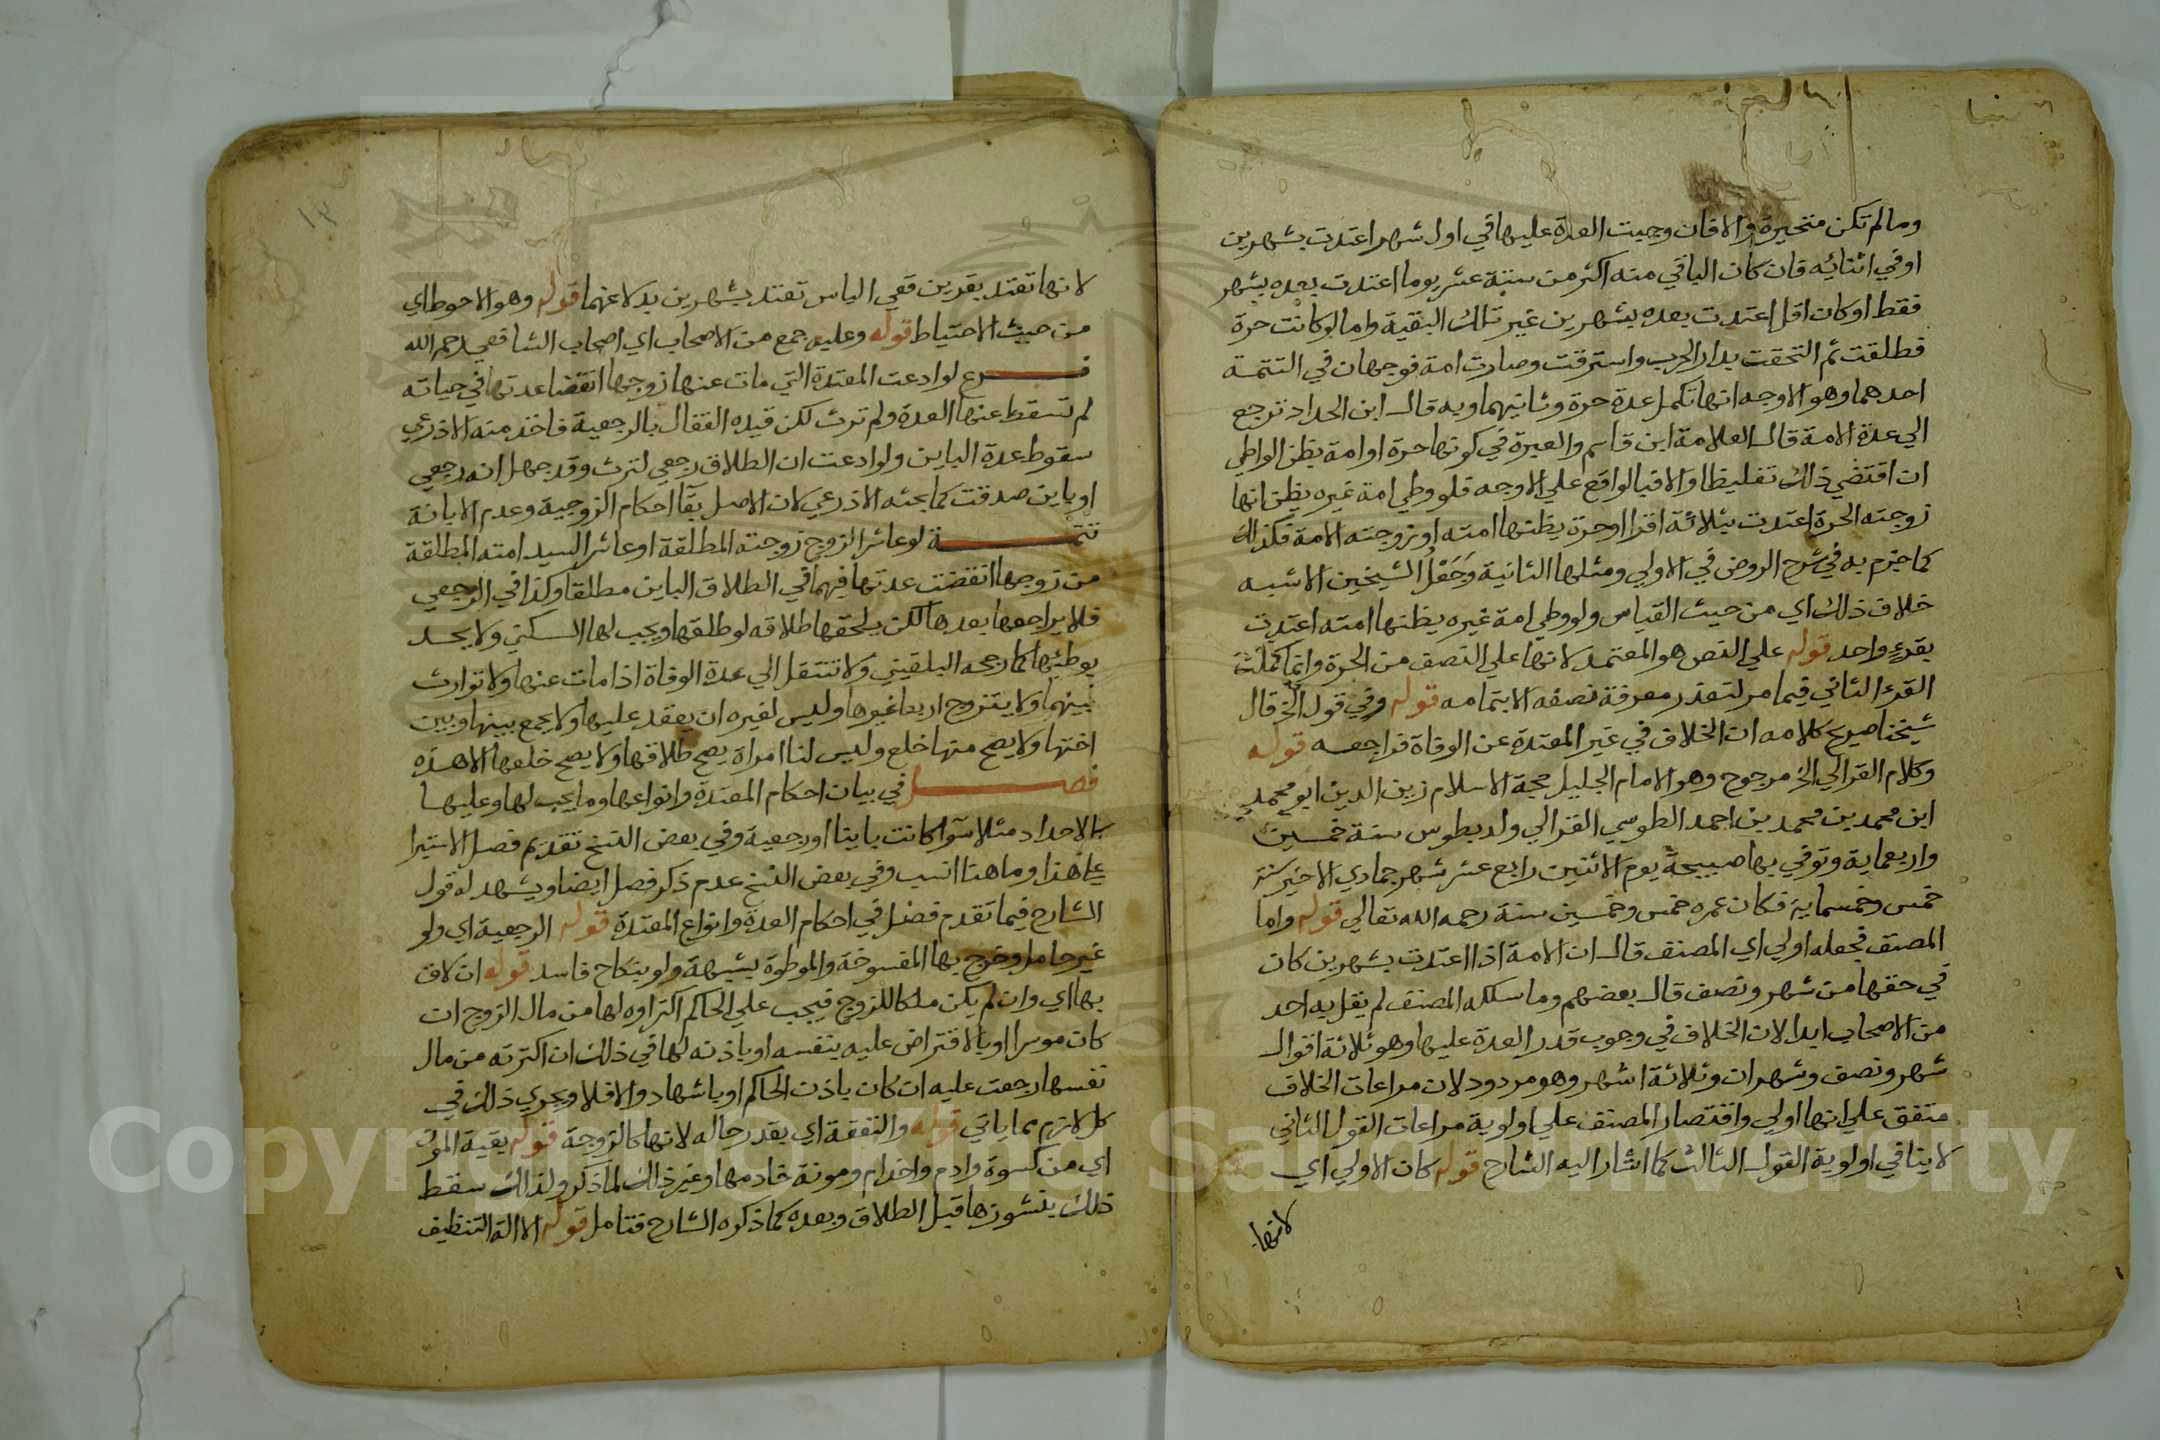 وما لم تكن متحيرة والا فان وجبت العدة عليها في اول شهر اعتدت بشهرين
او في اثنائه فان كان الباقي منه اكثر من ستة عشر يوما اعتدت بعده بشهر
فقط او كان اقل اعتدت بعده بشهرين غير تلك البقية واما لو كانت حرة
فطلقت ثم التحقت بدار الحرب واسترقت وصارت امة فوجهان في التتمة
احدهما وهو الاوجه انها تكمل عدة حرة وثانيهما وبه قال ابن الحداد ترجع
الي عدة الامة قال العلامة ابن قاسم والعبرة في كونها حرة او امة بظن الواطي
ان اقتضي ذلك تغليظا والا فبالواقع علي الاوجه فلو وطي امة غيره يظن انها
زوجته الحرة اعتدت بثلاثة اقرا او حرة يظنها امته او زوجته الامة فكذلك
كما جزم به في شرح الروض في الاولي ومثلها الثانية وجعل الشيخين الاشبه
خلاف ذلك اي من حيث القياس ولو وطي امة غيره يظنها امته اعتدت
بقرء واحد قوله علي النص هو المعتمد لانها علي النصف من الحرة وانما كملت
القرء الثاني فيما مر لتعذر معرفة نصفه الا بتمامه قوله وفي قول الخ قال
شيخنا صريح كلامه ان الخلاف في غير المعتدة عن الوفاة فراجعه قوله
وكلام الغزالي الخ مرجوح وهو الامام الجليل حجة الاسلام زين الدين ابو محمد
ابن محمد بن محمد بن احمد الطوسي الغزالي ولد بطوس سنة خمسين
واربعماية وتوفي بها صبيحة يوم الاثنين رابع عشر شهر جمادي الاخير سنة
خمس وخمسماية فكان عمره خمس وخمسين سنة رحمه الله تعالي قوله واما
المصنف فجعله اولي اي المصنف قال ان الامة اذا اعتدت بشهرين كان
في حقها من شهر ونصف قال بعضهم وما سلكه المصنف لم يقل به احد
من الاصحاب ابدا لان الخلاف في وجوب قدر العدة عليها وهو ثلاثة اقوال
شهر ونصف وشهران وثلاثة اشهر وهو مردود لان مراعات الخلاف
متفق علي انها اولي واقتصار المصنف علي اولوية مراعات القول الثاني
لا ينافي اولوية القول الثالث كما اشار اليه الشارح قوله كان الاولي اي
لانها
لانها تعتد بقرين ففي الياس تعتد بشهرين بدلا عنهما قوله وهو الاحوط اي
من حيث الاحتياط قوله وعليه جمع من الاصحاب اي اصحاب الشافعي رحمه الله
فرع لو ادعت المعتدة التي مات عنها زوجها انقضا عدتها في حياته
لم تسقط عنها العدة ولم ترث لكن قيده القفال بالرجعية فاخذ منه الاذرعي
سقوط عدة الباين ولو ادعت ان الطلاق رجعي لترث وقد جهل انه رجعي
او باين صدقت كما بحثه الاذرعي لان الاصل بقآ احكام الزوجية وعدم الابانة
تتمة لو عاشر الزوج زوجته المطلقة او عاشر السيد امته المطلقة
من زوجها انقضت عدتها فيهما في الطلاق الباين مطلقا وكذا في الرجعي
فلا يراجعها بعدها لكن يلحقها طلاقه لو طلقها ويجب لها السكني ولا يحد
بوطئها كما رجحه البلقيني ولا تنتقل الي عدة الوفاة اذا مات عنها ولا توارث
بينهما ولا يتزوج اربعا غيرها وليس لغيره ان يعقد عليها ولا يجمع بينها وبين
اختها ولا يصح منها خلع وليس لنا امراة يصح طلاقها ولا يصح خلعها الا هذه
فصل في بيان احكام المعتدة وانواعها وما يجب لها وعليها
كالاحداد مثلا سوآ كانت باينا او رجعية وفي بعض النسخ تقديم فصل الاستبرا
علي هذا وما هنا انسب وفي بعض النسخ عدم ذكر فصل ايضا ويشهد له قول
الشارح فيما تقدم فصل في احكام العدة وانواع المعتدة قوله الرجعية اي ولو
غير حامل وخرج بها المفسوخة والموطوة بشبهة ولو بنكاح فاسد قوله ان لاق
بها اي وان لم يكن ملكا للزوج فيجب علي الحاكم اكتراوه لها من مال الزوج ان
كان موسرا او بالاقتراض عليه بنفسه او باذنه لها في ذلك ان اكترته من مال
نفسها رجعت عليه ان كان باذن الحاكم او باشهاد والا فلا ويجري ذلك في
كل لازم مما ياتي قوله والنفقة اي بقدر حاله لانها كالزوجة قوله بقية المون
اي من كسوة وادم واخدام ومونة خادمها وغير ذلك لما ذكر ولذلك سقط
ذلك بنشوزها قبل الطلاق وبعده كما ذكره الشارح فتامل قوله الا الة التنظيف
Copyright © King Saud University